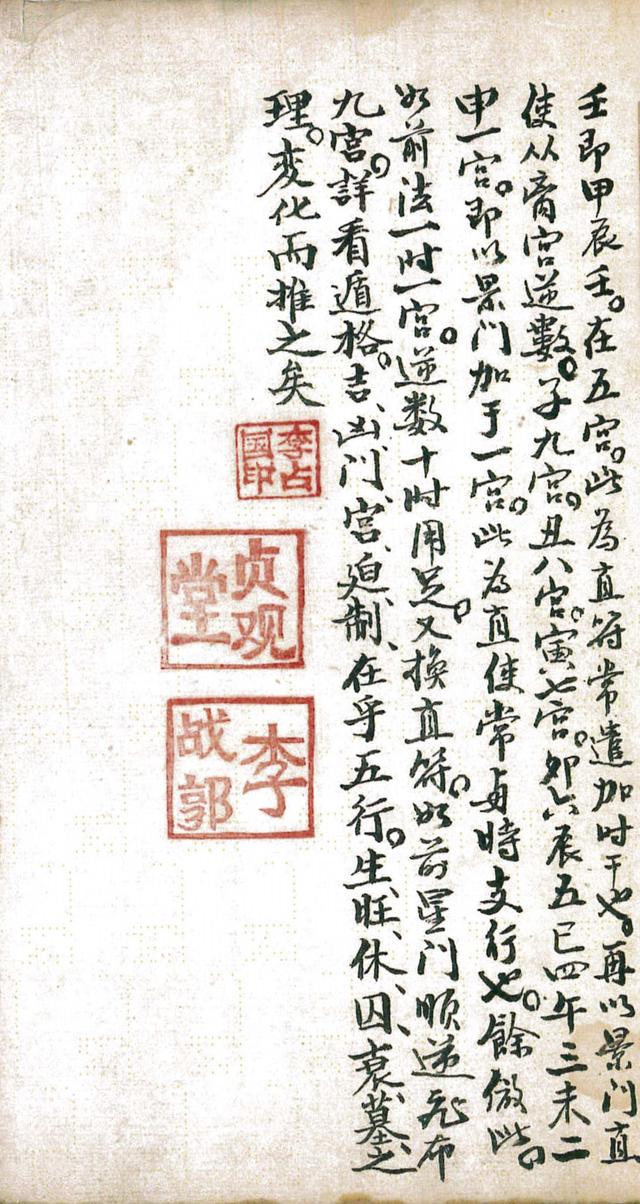 壬即甲辰壬。在五宮。此為直符常遣加时干也。再以景门直
使从离宫逆數。子九宫。丑八宫。寅七宫。卯六辰五巳四午三未二
申一宫。即以景门加于一宫。此为直使常与時支行也。餘倣此。
如前法一时一宫。逆数十时用足。又换直符。如前星门顺逆飛布
九宫。詳看遁格。吉、凶门、宫、迫、制、在乎五行。生、旺、休、囚、衰、墓、之
理。变化而推之矣
李占國印
贞观堂
李战郭